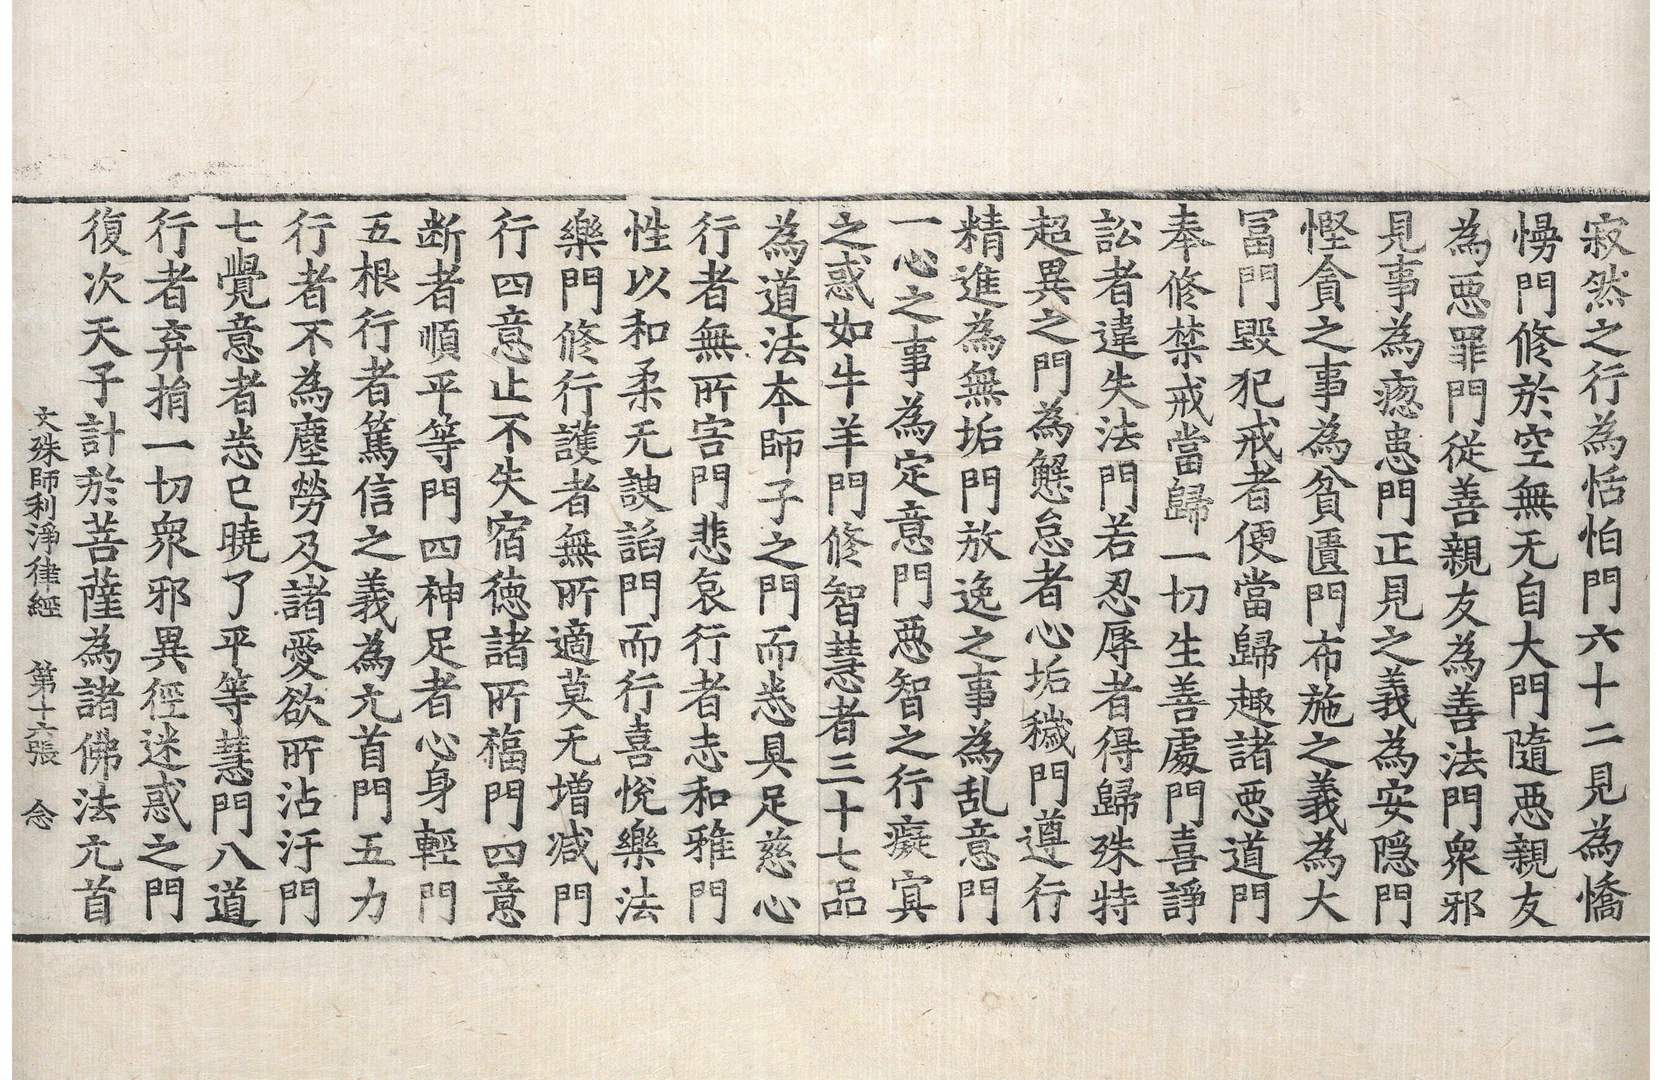 寂然之行為恬怕門六十二見為憍
慢門修於空無无自大門隨惡親友
為惡罪門從善親友為善法門衆邪
見事為瘛恚門正見之義為安隱門
慳貪之事為貧匱門布施之義為大
冨門毀犯戒者便當歸趣諸惡道門
奉修禁戒當歸一切生善處門喜諍
訟者違失法門若忍辱者得歸殊特
超異之門為懈怠者心垢穢門遵行
精進為無垢門放逸之事為乱意門
一心之事為定意門惡智之行癡冥
之惑如牛羊門修智慧者三十七品
為道法本師子之門而悉具足慈心
行者無所害門悲哀行者志和雅門
性以和柔无諛諂門而行喜悅樂法
樂門修行護者無所適莫无增減門
行四意止不失宿徳諸所福門四意
断者順平等門四神足者心身輕門
五根行者篤信之義為元首門五力
行者不為塵勞及諸愛欲所沾汙門
七覺意者悉已曉了平等慧門八道
行者弃捐一切衆邪異徑迷惑之門
復次天子計於菩薩為諸佛法元首
文殊師利淨律經 第十六張 念